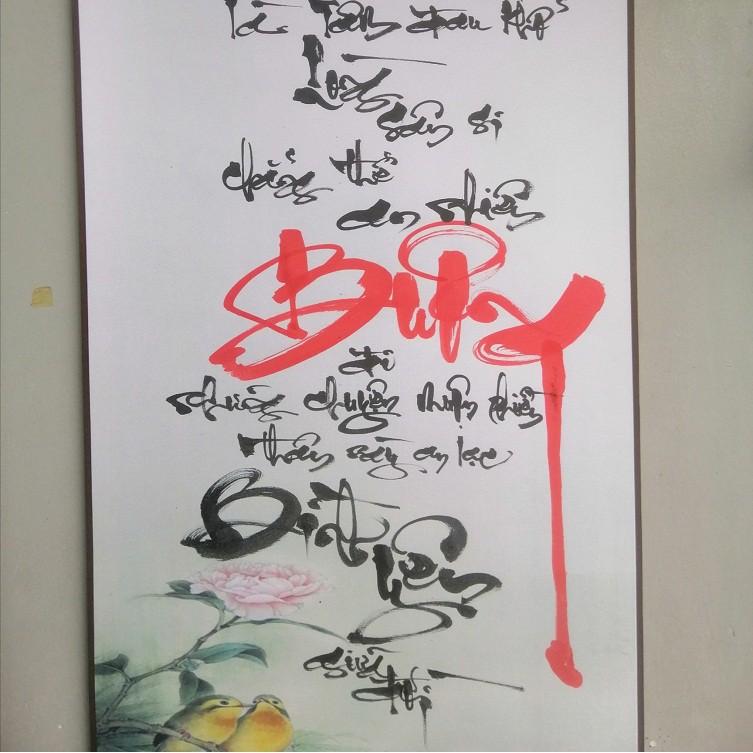 Là Tâm đau khổ
Lòng
sân si
chẳng thể
an nhiên
Buông
đi
những chuyện muộn phiền
Thân càng an lạc
Bình yên
giữa
đời